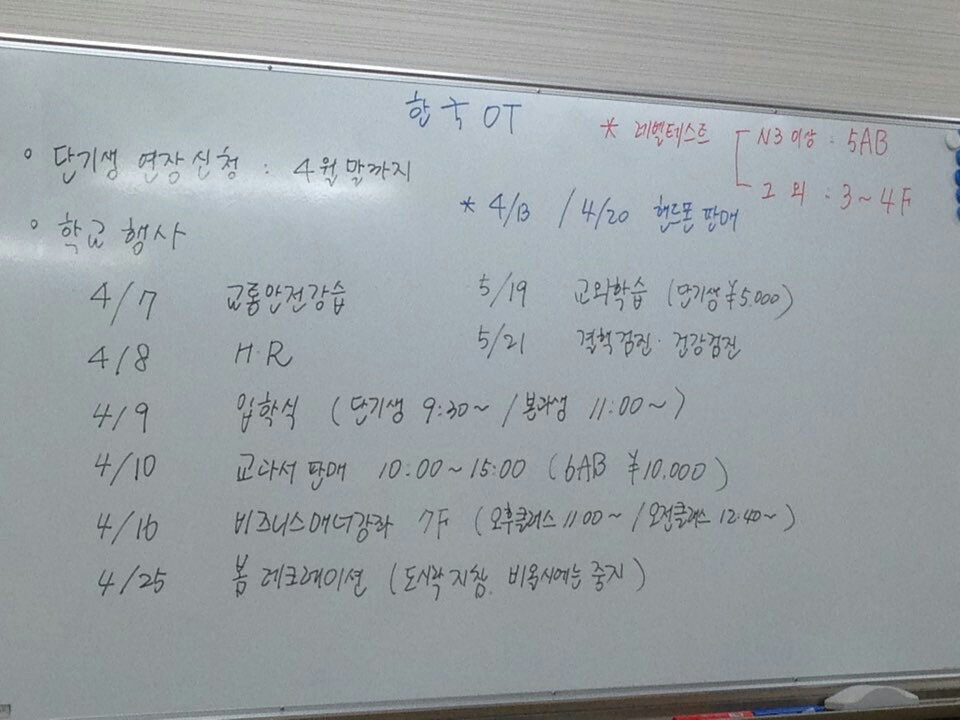 한국 OT
* 레벨테스트 N3 이상 : 5AB
그 외 : 3~4F
○ 단기생 연장신청 : 4월 말까지
* 4/13 / 4/20 핸드폰 판매
○ 학교 행사
4/7 교통안전강습
4/8 H·R
4/9 입학식 (단기생 9:30~ / 봉과생 11:00~)
4/10 교과서 판매 10:00~15:00 (6AB ¥10.000)
4/16 비즈니스매너강좌 7F (오후클러스 11:00~ / 오전클래스 12:40~)
4/25 봄 레크레이션 (도시락 지참. 비올시에는 중지)
5/19 교외학습 (단기생 ¥5.000)
5/21 결핵검진·건강검진